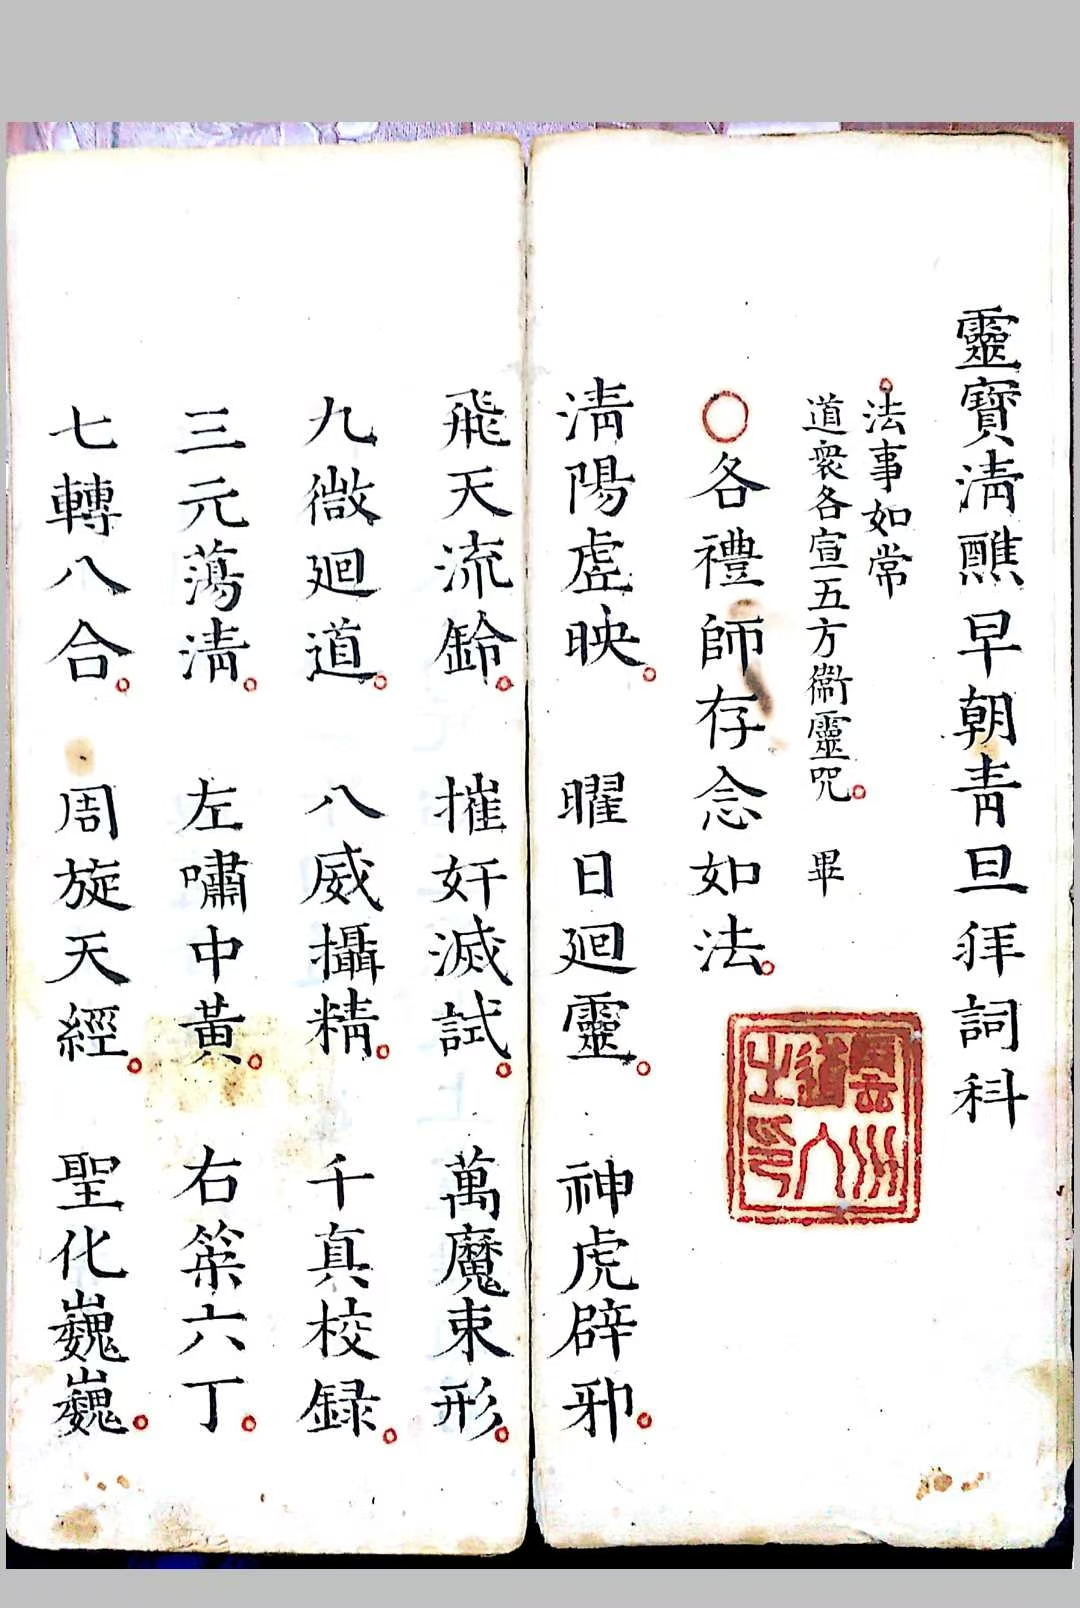 靈寶清醮早朝青旦拜詞科
法事如常
道衆各宣五方衞靈咒 畢
各禮師存念如法
清陽虛映 曜日廻靈 神虎辟邪
飛天流鈴 摧奸滅試 萬魔束形
九微廻道 八威攝精 千真校録
三元蕩清 左嘯中黃 右策六丁
七轉八合 周旋天經 聖化巍巍